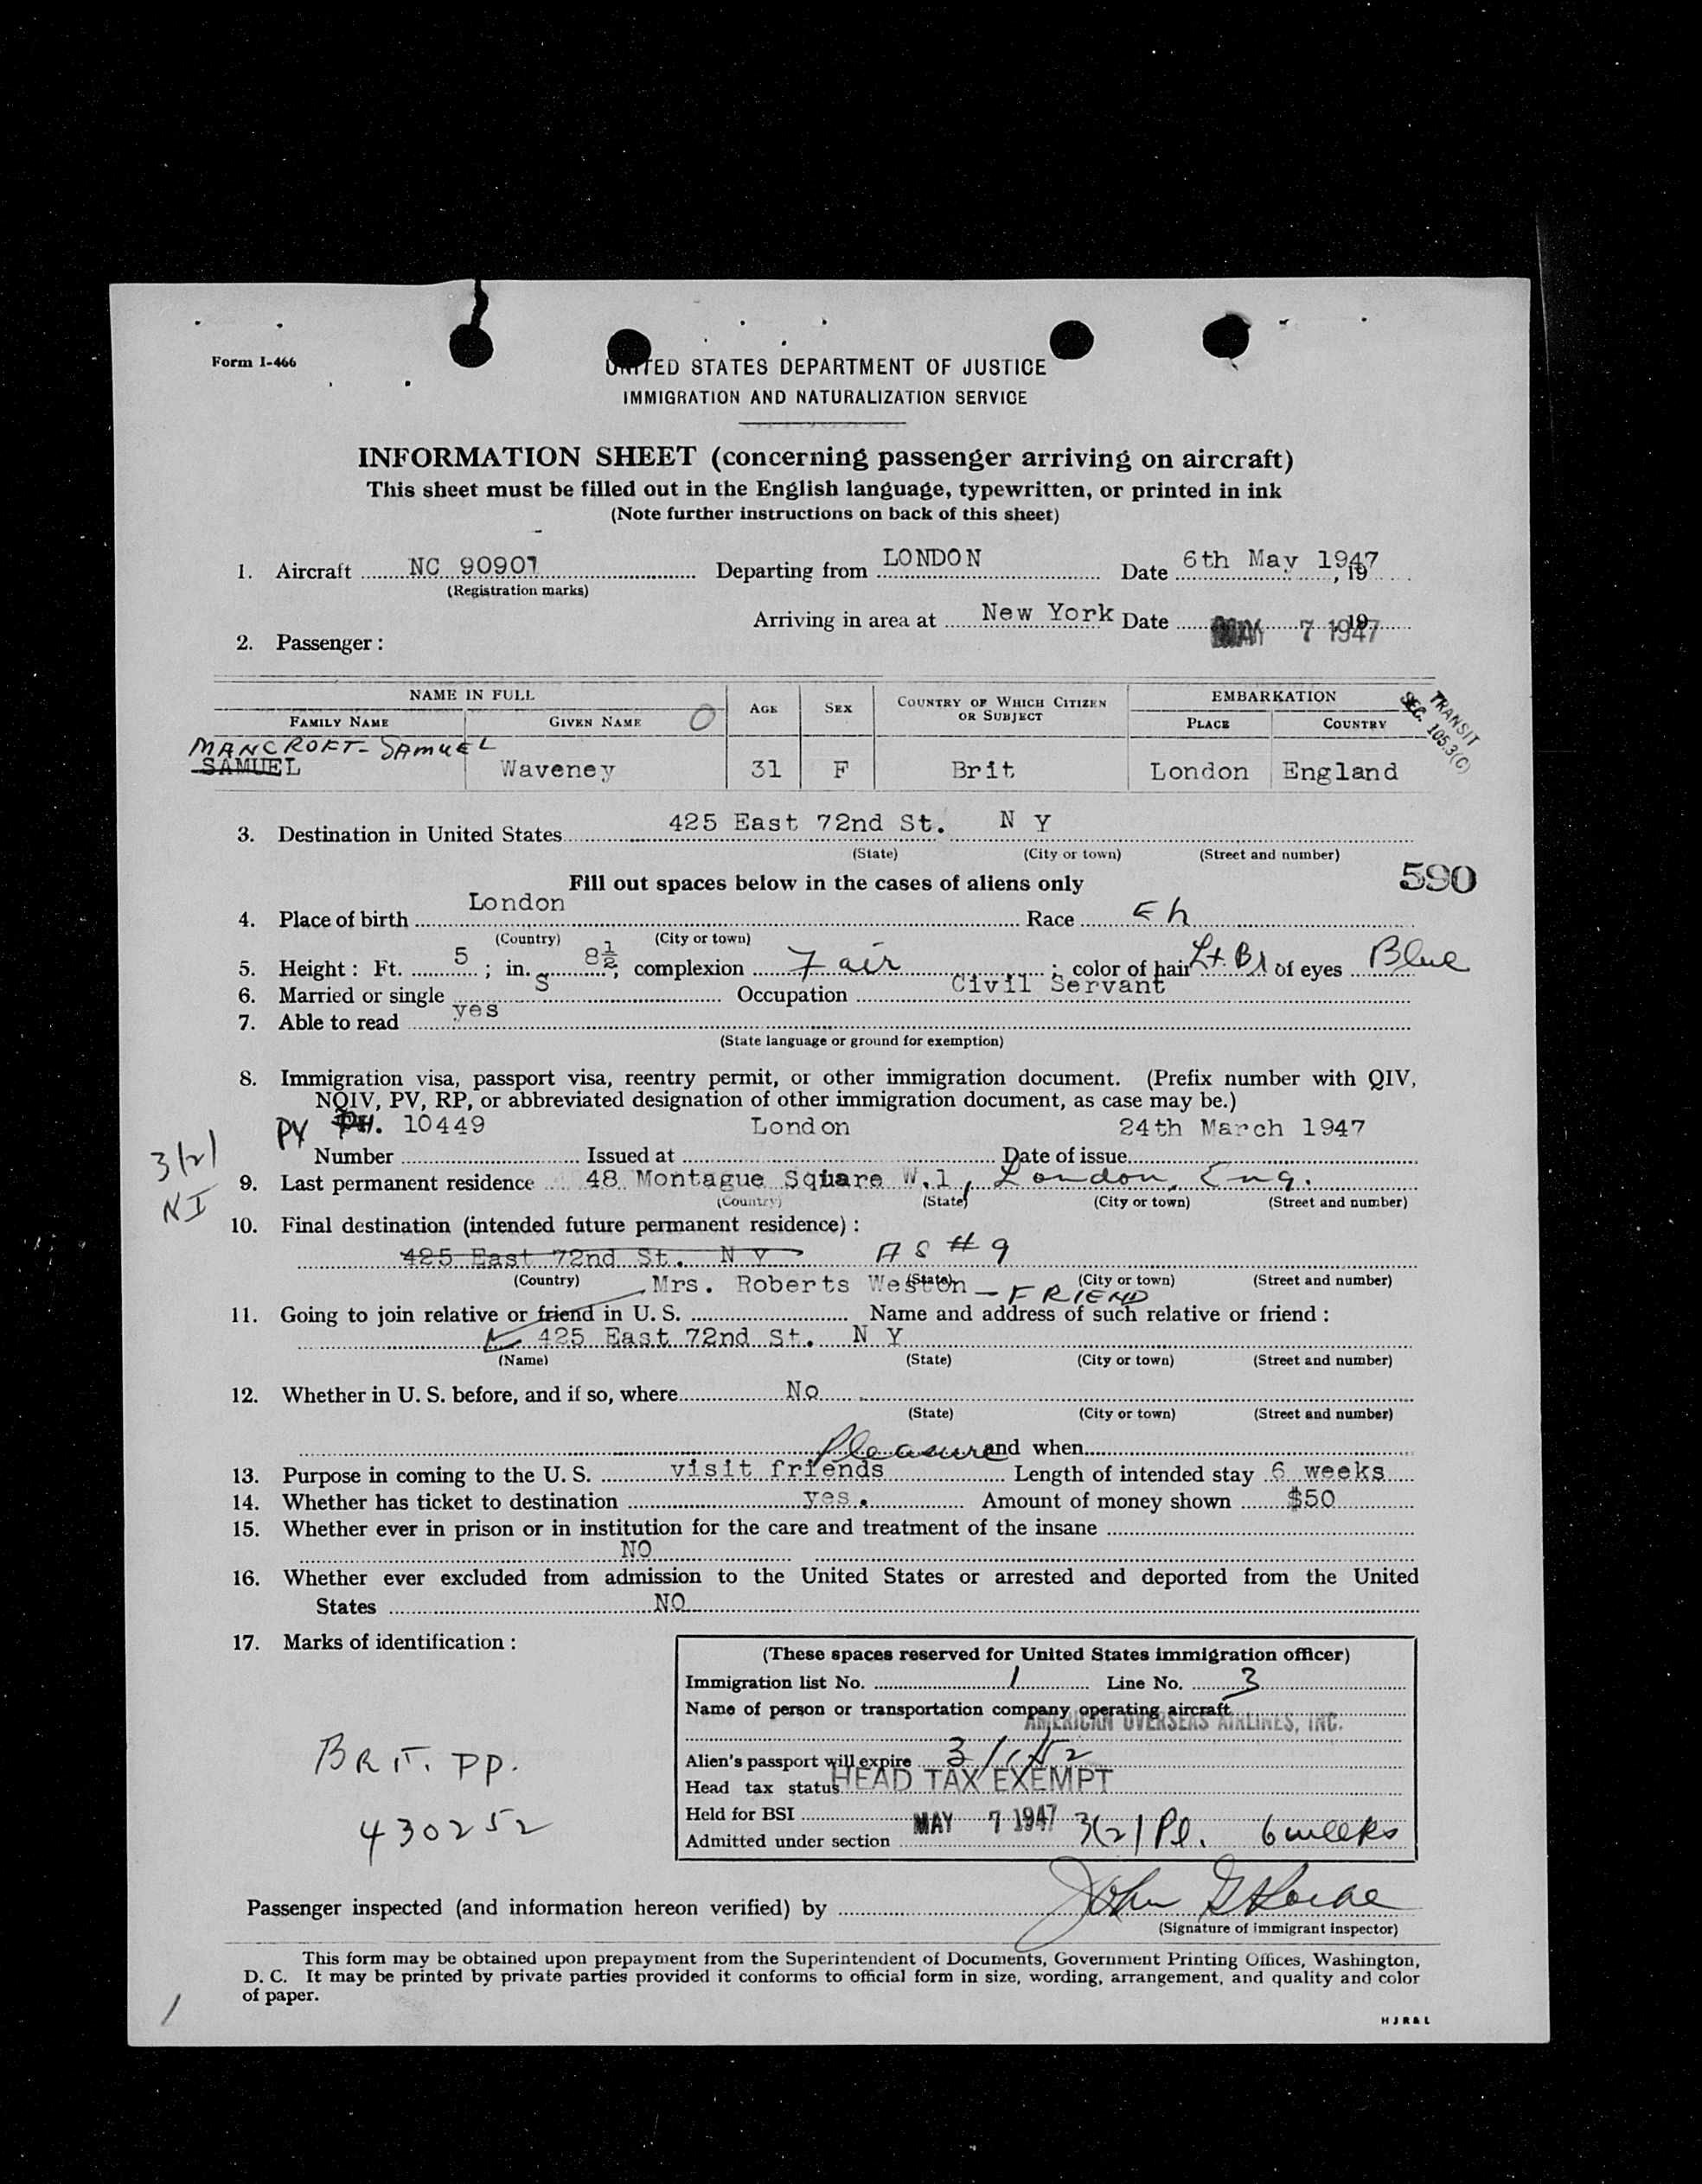 Form I-466
UNITED STATES DEPARTMENT OF JUSTICE
IMMIGRATION AND NATURALIZATION SERVICE
INFORMATION SHEET (concerning passenger arriving on aircraft)
This sheet must be filled out in the English language, typewritten, or printed in ink
(Note further instructions on back of this sheet)
1. Aircraft NC 90907 Departing from LONDON Date 6th May 1947, 19
(Registration marks)
Arriving in area at New York Date MAY 7 1947, 19
2. Passenger :
NAME IN FULL AGE SEX COUNTRY OF WHICH CITIZEN OR SUBJECT EMBARKATION
FAMILY NAME GIVEN NAME O PLACE COUNTRY
TRANSIT SEC. 105.3(C)
MANCROFT-SAMUEL
SAMUEL Waveney 31 F Brit London England
3. Destination in United States 425 East 72nd St. N Y
(State) (City or town) (Street and number)
590
Fill out spaces below in the cases of aliens only
4. Place of birth London Race Eh
(Country) (City or town)
5. Height : Ft. 5 ; in. 8½, complexion Fair ; color of hair Lt Br of eyes Blue
6. Married or single S Occupation Civil Servant
7. Able to read yes
(State language or ground for exemption)
8. Immigration visa, passport visa, reentry permit, or other immigration document. (Prefix number with QIV,
NQIV, PV, RP, or abbreviated designation of other immigration document, as case may be.)
PV 10449 London 24th March 1947
Number Issued at Date of issue
3(2)
NI
9. Last permanent residence 48 Montague Square W.1, London, Eng.
(Country) (State) (City or town) (Street and number)
10. Final destination (intended future permanent residence) :
425 East 72nd St. N Y AS # 9
(Country) (State) (City or town) (Street and number)
Mrs. Roberts Weston - FRIEND
11. Going to join relative or friend in U. S. Name and address of such relative or friend :
425 East 72nd St. N Y
(Name) (State) (City or town) (Street and number)
12. Whether in U. S. before, and if so, where No
(State) (City or town) (Street and number)
Pleasure and when
13. Purpose in coming to the U. S. visit friends Length of intended stay 6 weeks
14. Whether has ticket to destination yes. Amount of money shown $50
15. Whether ever in prison or in institution for the care and treatment of the insane
NO
16. Whether ever excluded from admission to the United States or arrested and deported from the United
States NO
17. Marks of identification :
BRIT. PP.
430252
(These spaces reserved for United States immigration officer)
Immigration list No. 1 Line No. 3
Name of person or transportation company operating aircraft
AMERICAN OVERSEAS AIRLINES, INC.
Alien's passport will expire 3/1/52
Head tax status HEAD TAX EXEMPT
Held for BSI
Admitted under section MAY 7 1947 3(2) Pl. 6 weeks
Passenger inspected (and information hereon verified) by John
(Signature of immigrant inspector)
This form may be obtained upon prepayment from the Superintendent of Documents, Government Printing Offices, Washington,
D. C. It may be printed by private parties provided it conforms to official form in size, wording, arrangement, and quality and color
of paper.
HJR&L